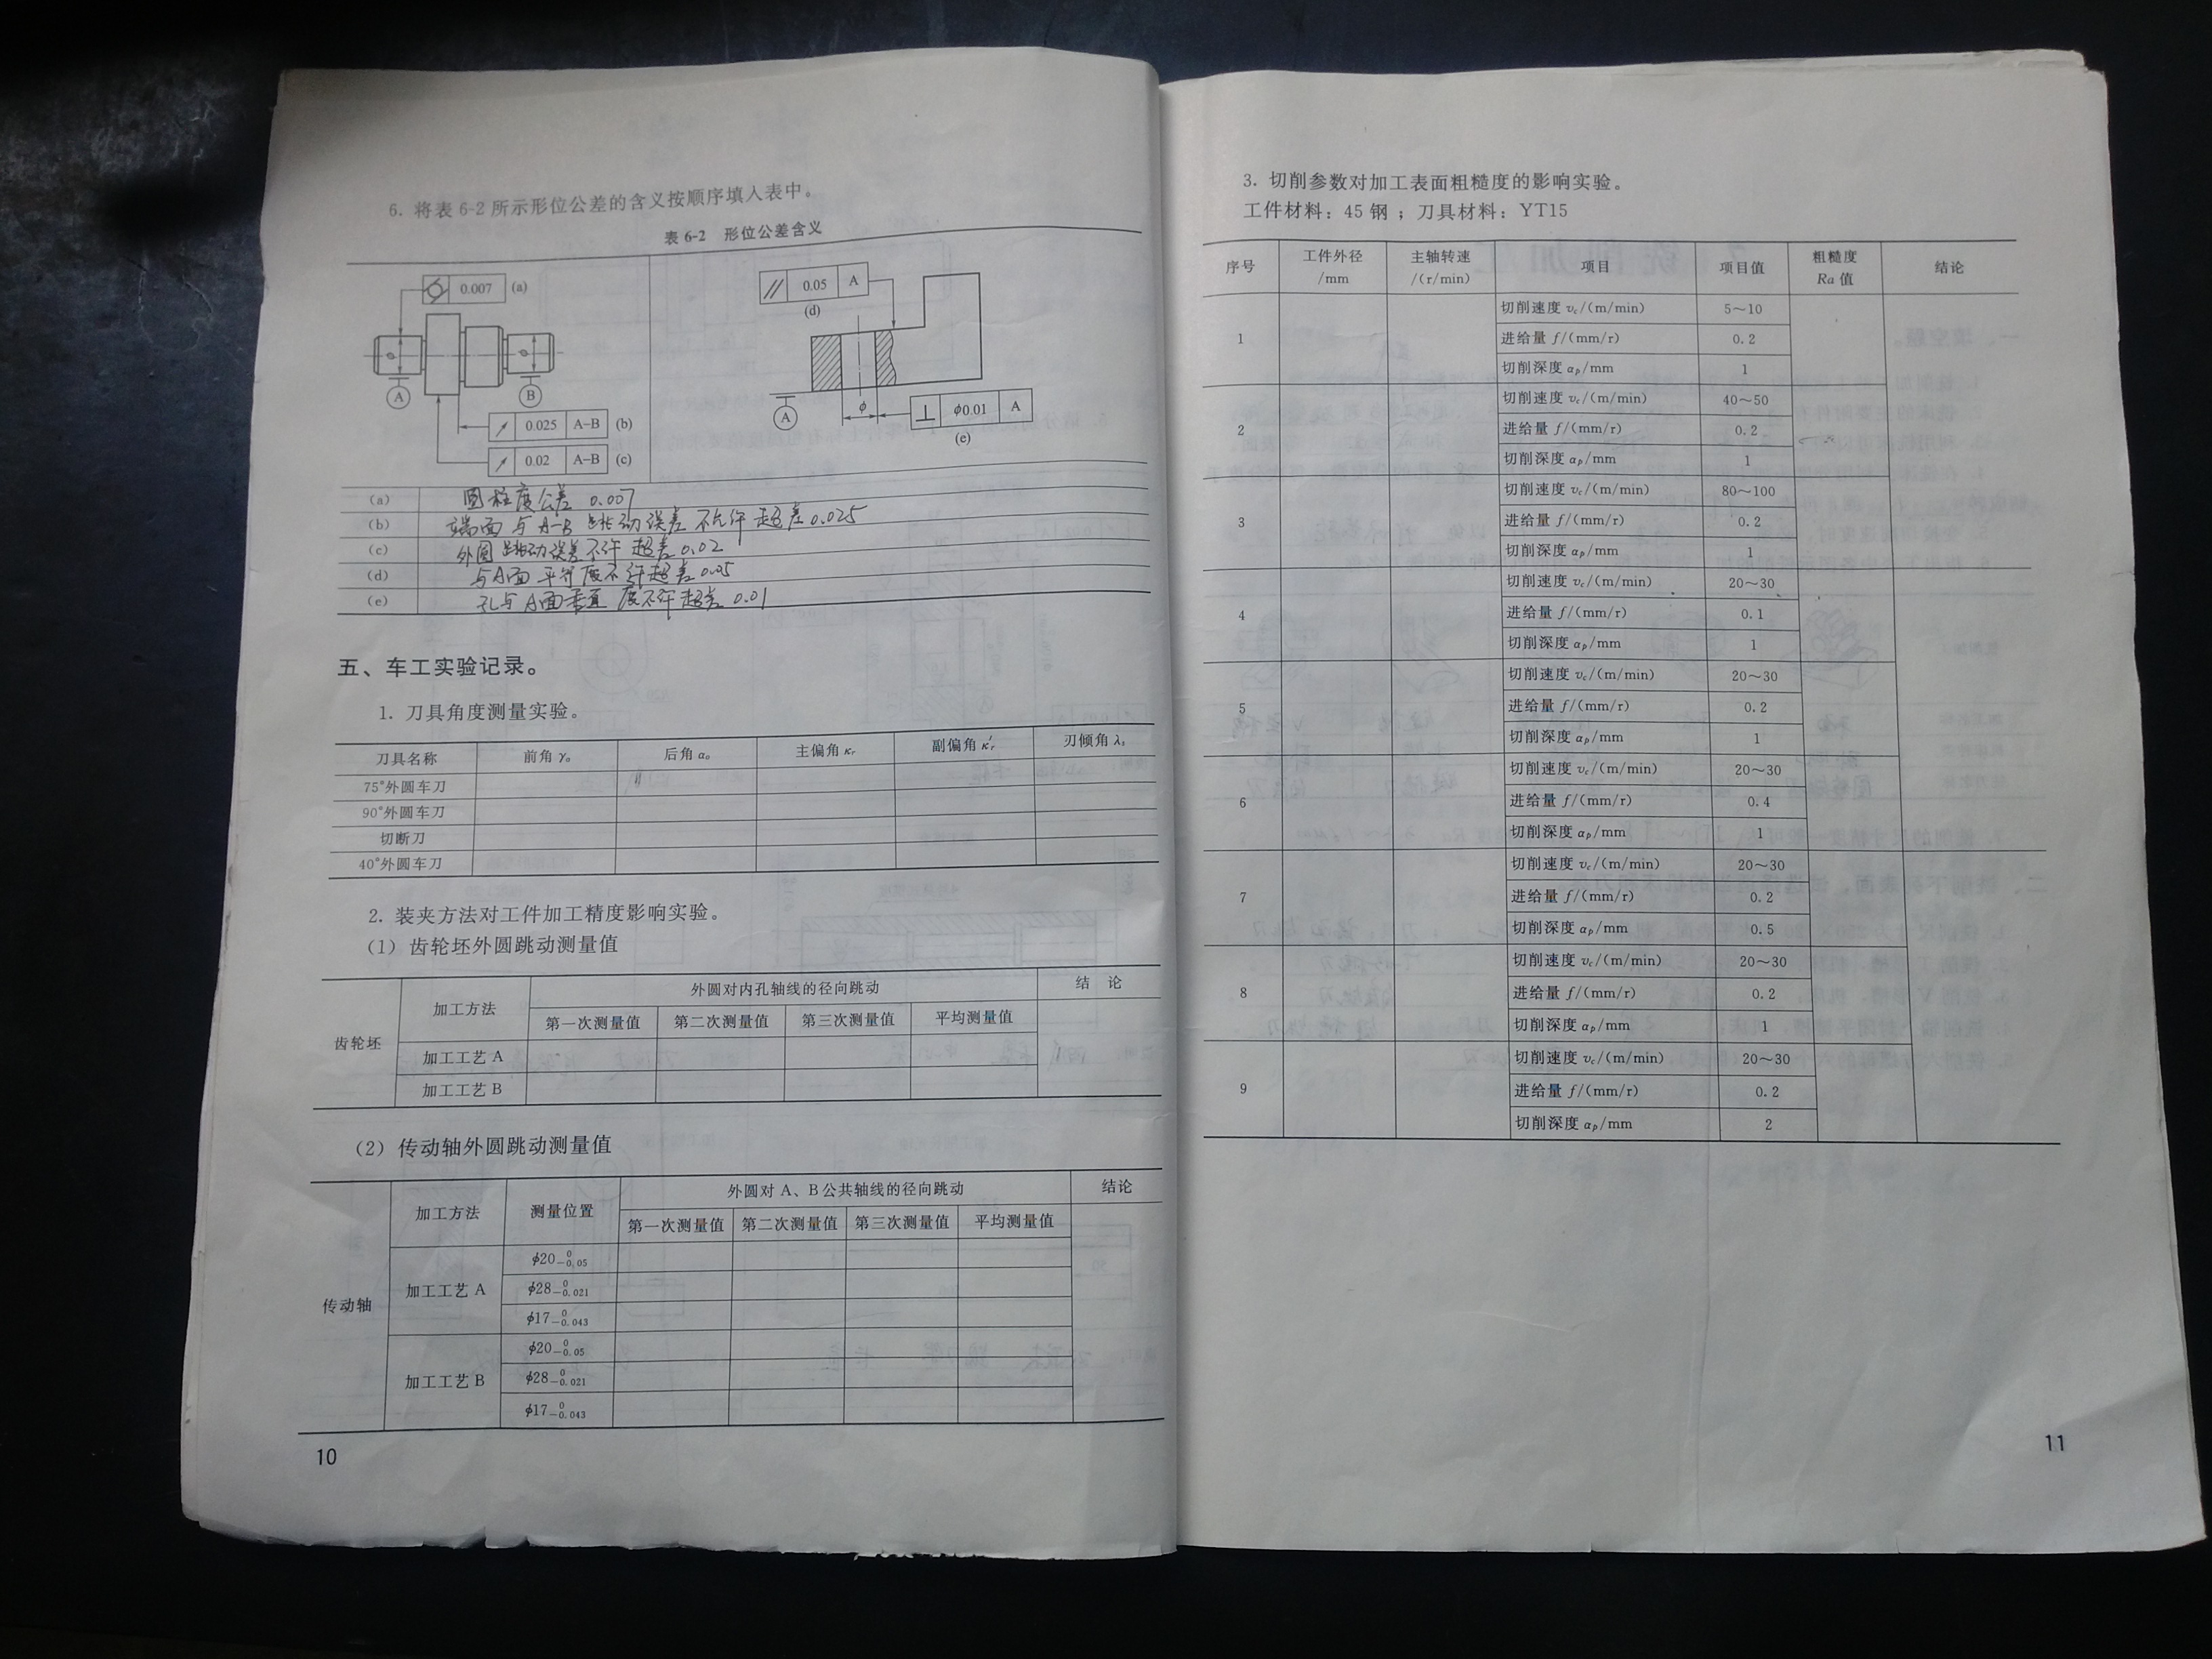 6. 将表 6-2 所示形位公差的含义按顺序填入表中。
表 6-2 形位公差含义
0.007 (a)
A B
0.025 A-B (b)
0.02 A-B (c)
// 0.05 A
(d)
A ϕ
⊥ ϕ0.01 A
(e)
(a) 圆柱度公差 0.007
(b) 端面与A-B跳动误差不允许超差0.025
(c) 外圆跳动误差不许超差0.02
(d) 与A面平行度不许超差0.05
(e) 孔与A面垂直度不许超差0.01
五、车工实验记录。
1. 刀具角度测量实验。
刀具名称 前角 γₒ 后角 αₒ 主偏角 κᵣ 副偏角 κ′ᵣ 刃倾角 λₛ
75°外圆车刀
90°外圆车刀
切断刀
40°外圆车刀
2. 装夹方法对工件加工精度影响实验。
(1) 齿轮坯外圆跳动测量值
齿轮坯 加工方法 外圆对内孔轴线的径向跳动 结 论
第一次测量值 第二次测量值 第三次测量值 平均测量值
加工工艺 A
加工工艺 B
(2) 传动轴外圆跳动测量值
传动轴 加工方法 测量位置 外圆对 A、B 公共轴线的径向跳动 结论
第一次测量值 第二次测量值 第三次测量值 平均测量值
加工工艺 A
ϕ20 0 −0.05
ϕ28 0 −0.021
ϕ17 0 −0.043
加工工艺 B
ϕ20 0 −0.05
ϕ28 0 −0.021
ϕ17 0 −0.043
10
3. 切削参数对加工表面粗糙度的影响实验。
工件材料：45 钢；刀具材料：YT15
序号 工件外径/mm 主轴转速/(r/min) 项目 项目值 粗糙度 Ra 值 结论
1
切削速度 v_c/(m/min) 5～10
进给量 f/(mm/r) 0.2
切削深度 α_p/mm 1
2
切削速度 v_c/(m/min) 40～50
进给量 f/(mm/r) 0.2
切削深度 α_p/mm 1
3
切削速度 v_c/(m/min) 80～100
进给量 f/(mm/r) 0.2
切削深度 α_p/mm 1
4
切削速度 v_c/(m/min) 20～30
进给量 f/(mm/r) 0.1
切削深度 α_p/mm 1
5
切削速度 v_c/(m/min) 20～30
进给量 f/(mm/r) 0.2
切削深度 α_p/mm 1
6
切削速度 v_c/(m/min) 20～30
进给量 f/(mm/r) 0.4
切削深度 α_p/mm 1
7
切削速度 v_c/(m/min) 20～30
进给量 f/(mm/r) 0.2
切削深度 α_p/mm 0.5
8
切削速度 v_c/(m/min) 20～30
进给量 f/(mm/r) 0.2
切削深度 α_p/mm 1
9
切削速度 v_c/(m/min) 20～30
进给量 f/(mm/r) 0.2
切削深度 α_p/mm 2
11